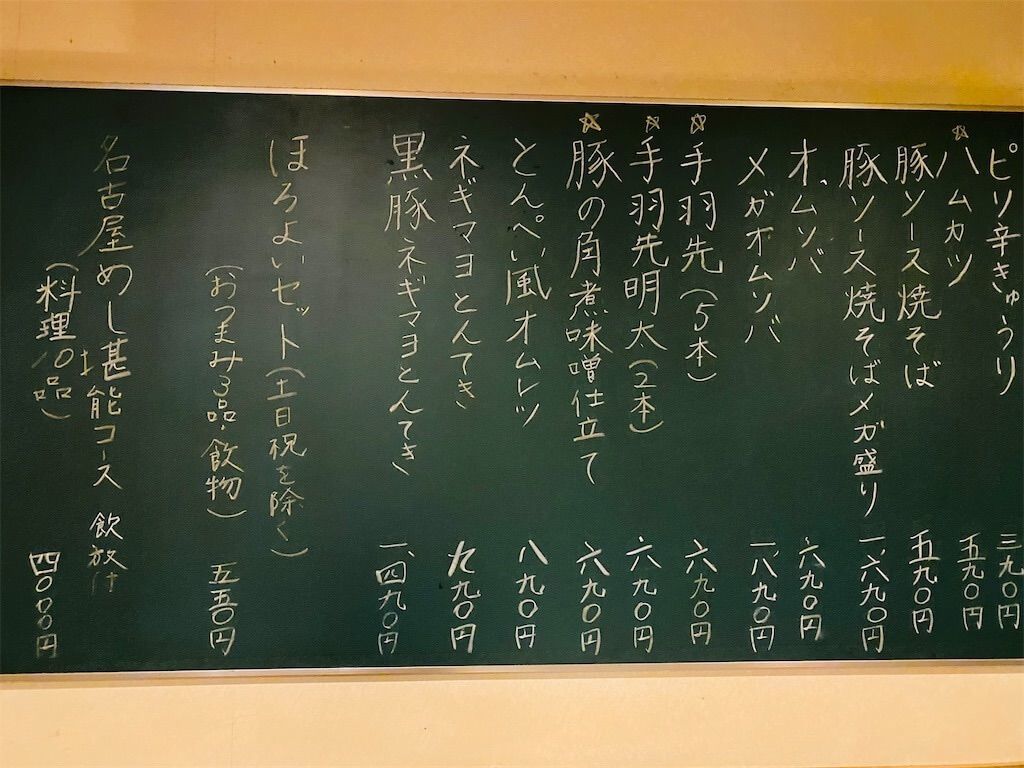 ピリ辛きゅうり 三九〇円
☆ハムカツ 五九〇円
豚ソース焼そば 五九〇円
豚ソース焼そばメガ盛り 一、六九〇円
オムソバ 六九〇円
メガオムソバ 一、八九〇円
☆手羽先(5本) 六九〇円
☆手羽先明太(2本) 六九〇円
☆豚の角煮味噌仕立て 六九〇円
とんぺい風オムレツ 八九〇円
ネギマヨとんてき 九九〇円
黒豚ネギマヨとんてき 一、四九〇円
ほろよいセット(土日祝を除く)
(おつまみ3品・飲物) 五五〇円
名古屋めし堪能コース 飲放付
(料理10品) 四〇〇〇円